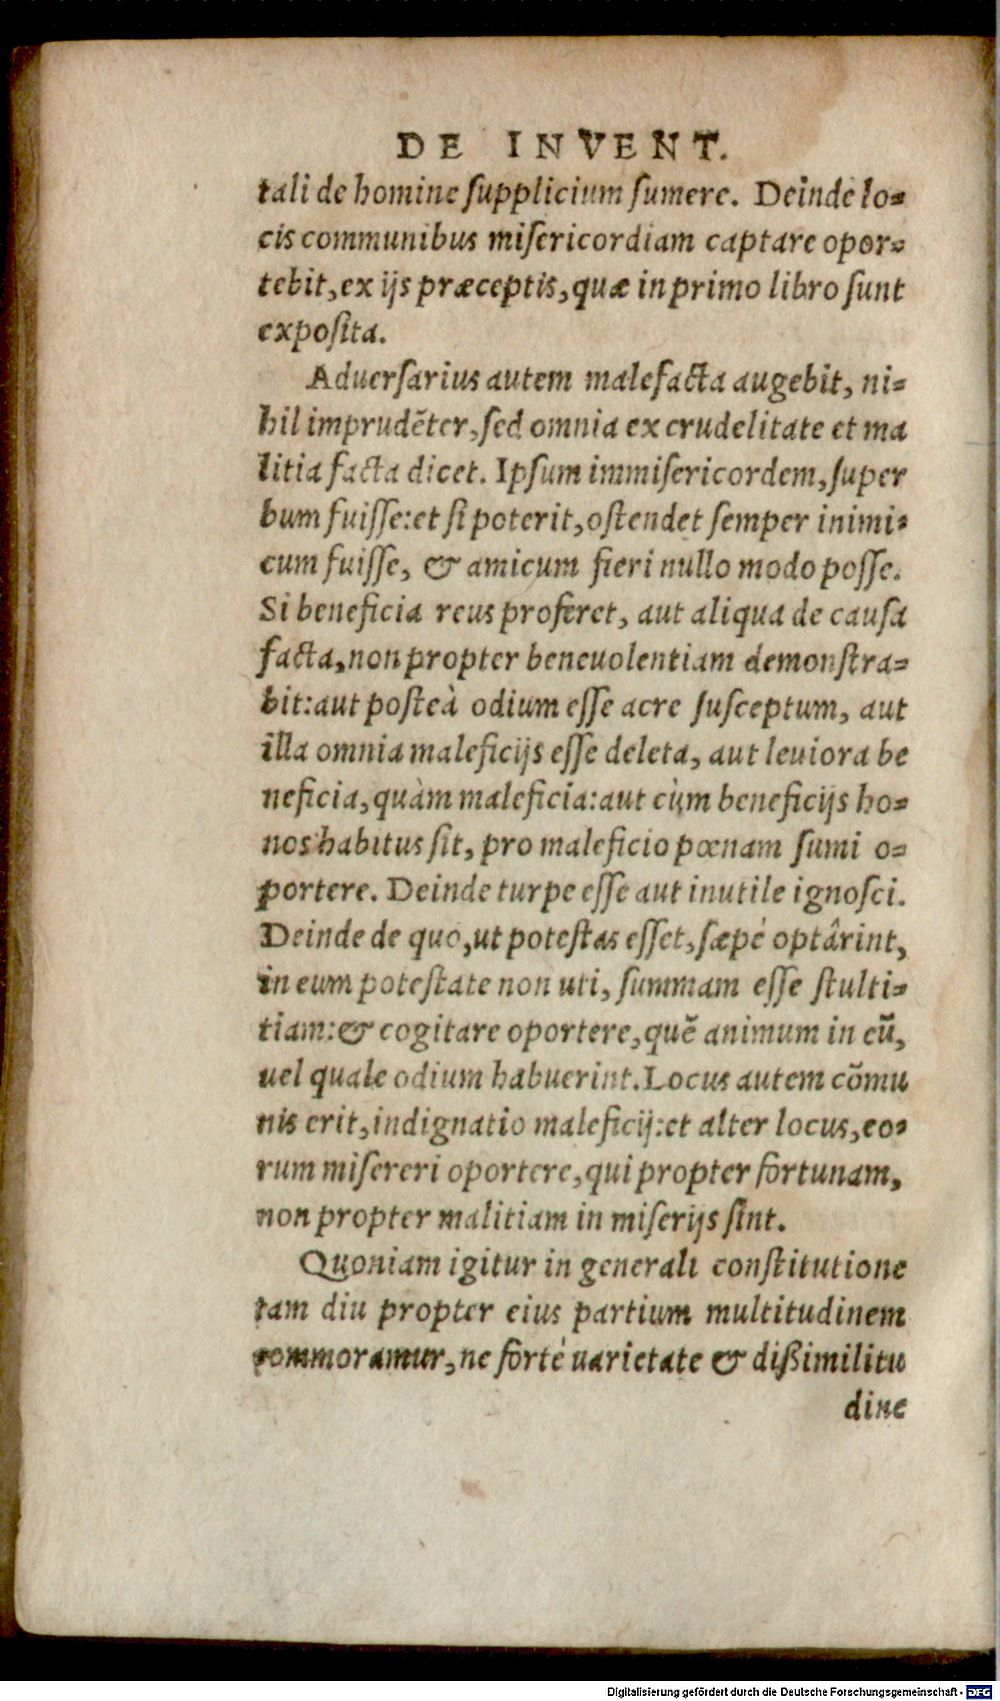 DE INVENT.
tali de homine ſupplicium ſumere. Deinde lo-
cis communibus miſericordiam captare opor-
tebit, ex ijs præceptis, quæ in primo libro ſunt
expoſita.
Aduerſarius autem malefacta augebit, ni-
hil imprudẽter, ſed omnia ex crudelitate et ma
litia facta dicet. Ipſum immiſericordem, ſuper
bum fuiſſe: et ſi poterit, oſtendet ſemper inimi-
cum fuiſſe, & amicum fieri nullo modo poſſe.
Si beneficia reus proferet, aut aliqua de cauſa
facta, non propter beneuolentiam demonſtra-
bit: aut poſteà odium eſſe acre ſuſceptum, aut
illa omnia maleficijs eſſe deleta, aut leuiora be
neficia, quàm maleficia: aut cùm beneficijs ho-
nos habitus ſit, pro maleficio pœnam ſumi o-
portere. Deinde turpe eſſe aut inutile ignoſci.
Deinde de quo, ut poteſtas eſſet, ſæpè optârint,
in eum poteſtate non uti, ſummam eſſe ſtulti-
tiam: & cogitare oportere, quẽ animum in eũ,
uel quale odium habuerint. Locus autem cõmu
nis erit, indignatio maleficij: et alter locus, eo-
rum miſereri oportere, qui propter fortunam,
non propter malitiam in miſerijs ſint.
Quoniam igitur in generali conſtitutione
tam diu propter eius partium multitudinem
commoramur, ne fortè uarietate & dißimilitu
dine
Digitalisierung gefördert durch die Deutsche Forschungsgemeinschaft - DFG